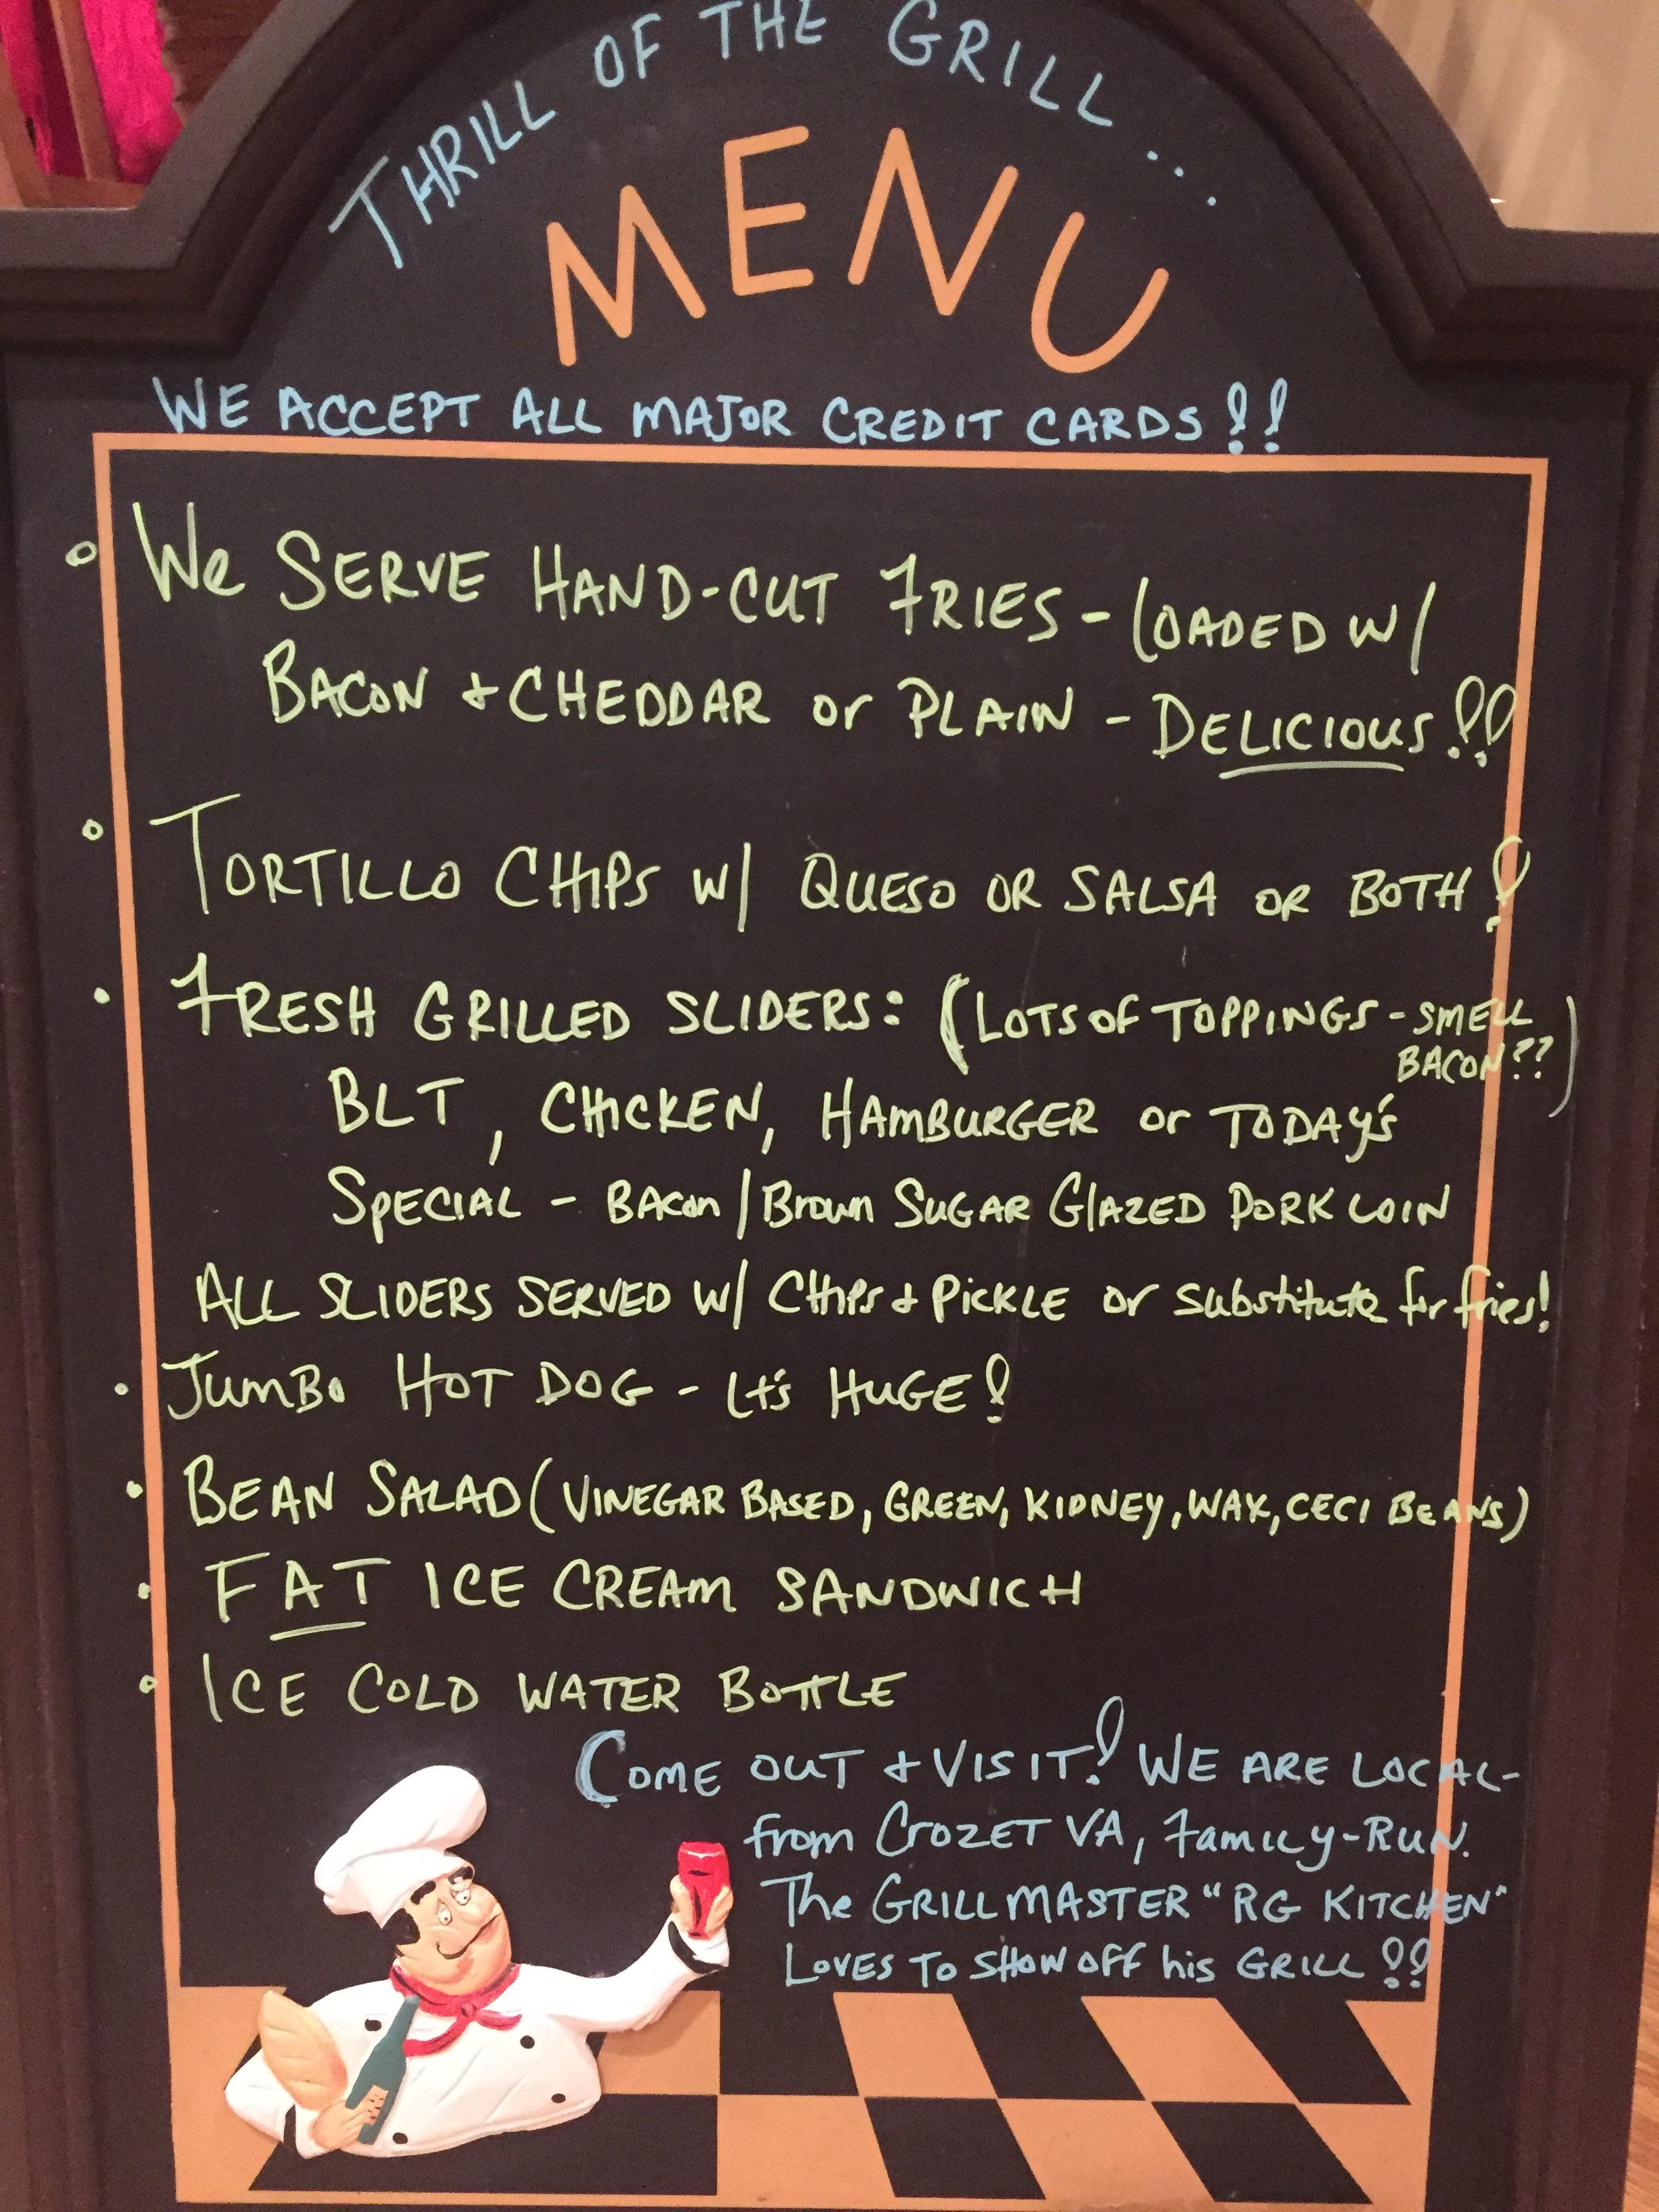 THRILL OF THE GRILL...
MENU
WE ACCEPT ALL MAJOR CREDIT CARDS!!
• We SERVE HAND-CUT FRIES - LOADED W/
BACON + CHEDDAR or PLAIN - DELICIOUS!!
• TORTILLO CHIPS W/ QUESO OR SALSA OR BOTH!
• FRESH GRILLED SLIDERS: (LOTS OF TOPPINGS - SMELL
BACON??)
BLT, CHICKEN, HAMBURGER or TODAY'S
SPECIAL - BACon/Brown SUGAR GlAZED PORK LOIN
ALL SLIDERS SERVED W/ CHIPS + PICKLE or substitute for fries!
• JUMBO HOT DOG - It's HUGE!
• BEAN SALAD (VINEGAR BASED, GREEN, KIDNEY, WAX, CECI BEANS)
• FAT ICE CREAM SANDWICH
• ICE COLD WATER BOTTLE
COME OUT + VISIT! WE ARE LOCAL-
from CROZET VA, FAMILY-RUN.
The GRILLMASTER "RG KITCHEN"
LOVES TO SHOW OFF his GRILL!!